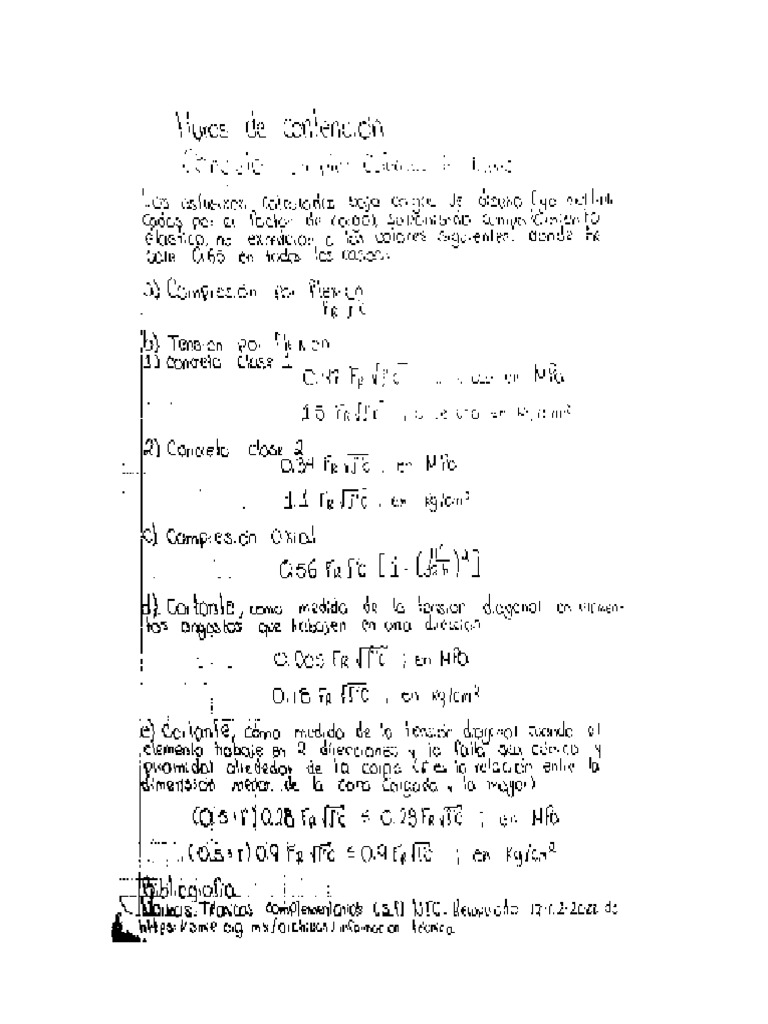 Muros de contención
Concreto simple
Los esfuerzos calculados bajo cargas de diseño (ya multipli
cadas por el factor de carga), suponiendo comportamiento
elástico, no excederán a los valores siguientes, donde FR
vale 0.65 en todos los casos:
a) Compresión por flexión
FR f'c
b) Tensión por flexión
1) Concreto clase 1
0.47 FR √f'c en MPa
1.5 FR √f'c , en kg/cm²
2) Concreto clase 2
0.34 FR √f'c , en MPa
1.1 FR √f'c , en kg/cm²
c) Compresión axial
0.56 FR f'c [1 - ( )²]
d) Cortante, como medida de la tensión diagonal en elemen-
tos angostos que trabajen en una dirección
FR √f'c ; en MPa
0.18 FR √f'c , en kg/cm²
e) Cortante, como medida de la tensión diagonal cuando el
elemento trabaje en 2 direcciones y la falla sea cónica y
piramidal alrededor de la carga (r es la relación entre la
dimensión menor de la zona cargada y la mayor)
(0.5+r) 0.28 FR √f'c ≤ 0.28 FR √f'c ; en MPa
(0.5+r) 0.9 FR √f'c ≤ 0.9 FR √f'c ; en kg/cm²
Bibliografía
Normas Técnicas Complementarias (s.f) NTC. Recuperado 2022 de
información técnica